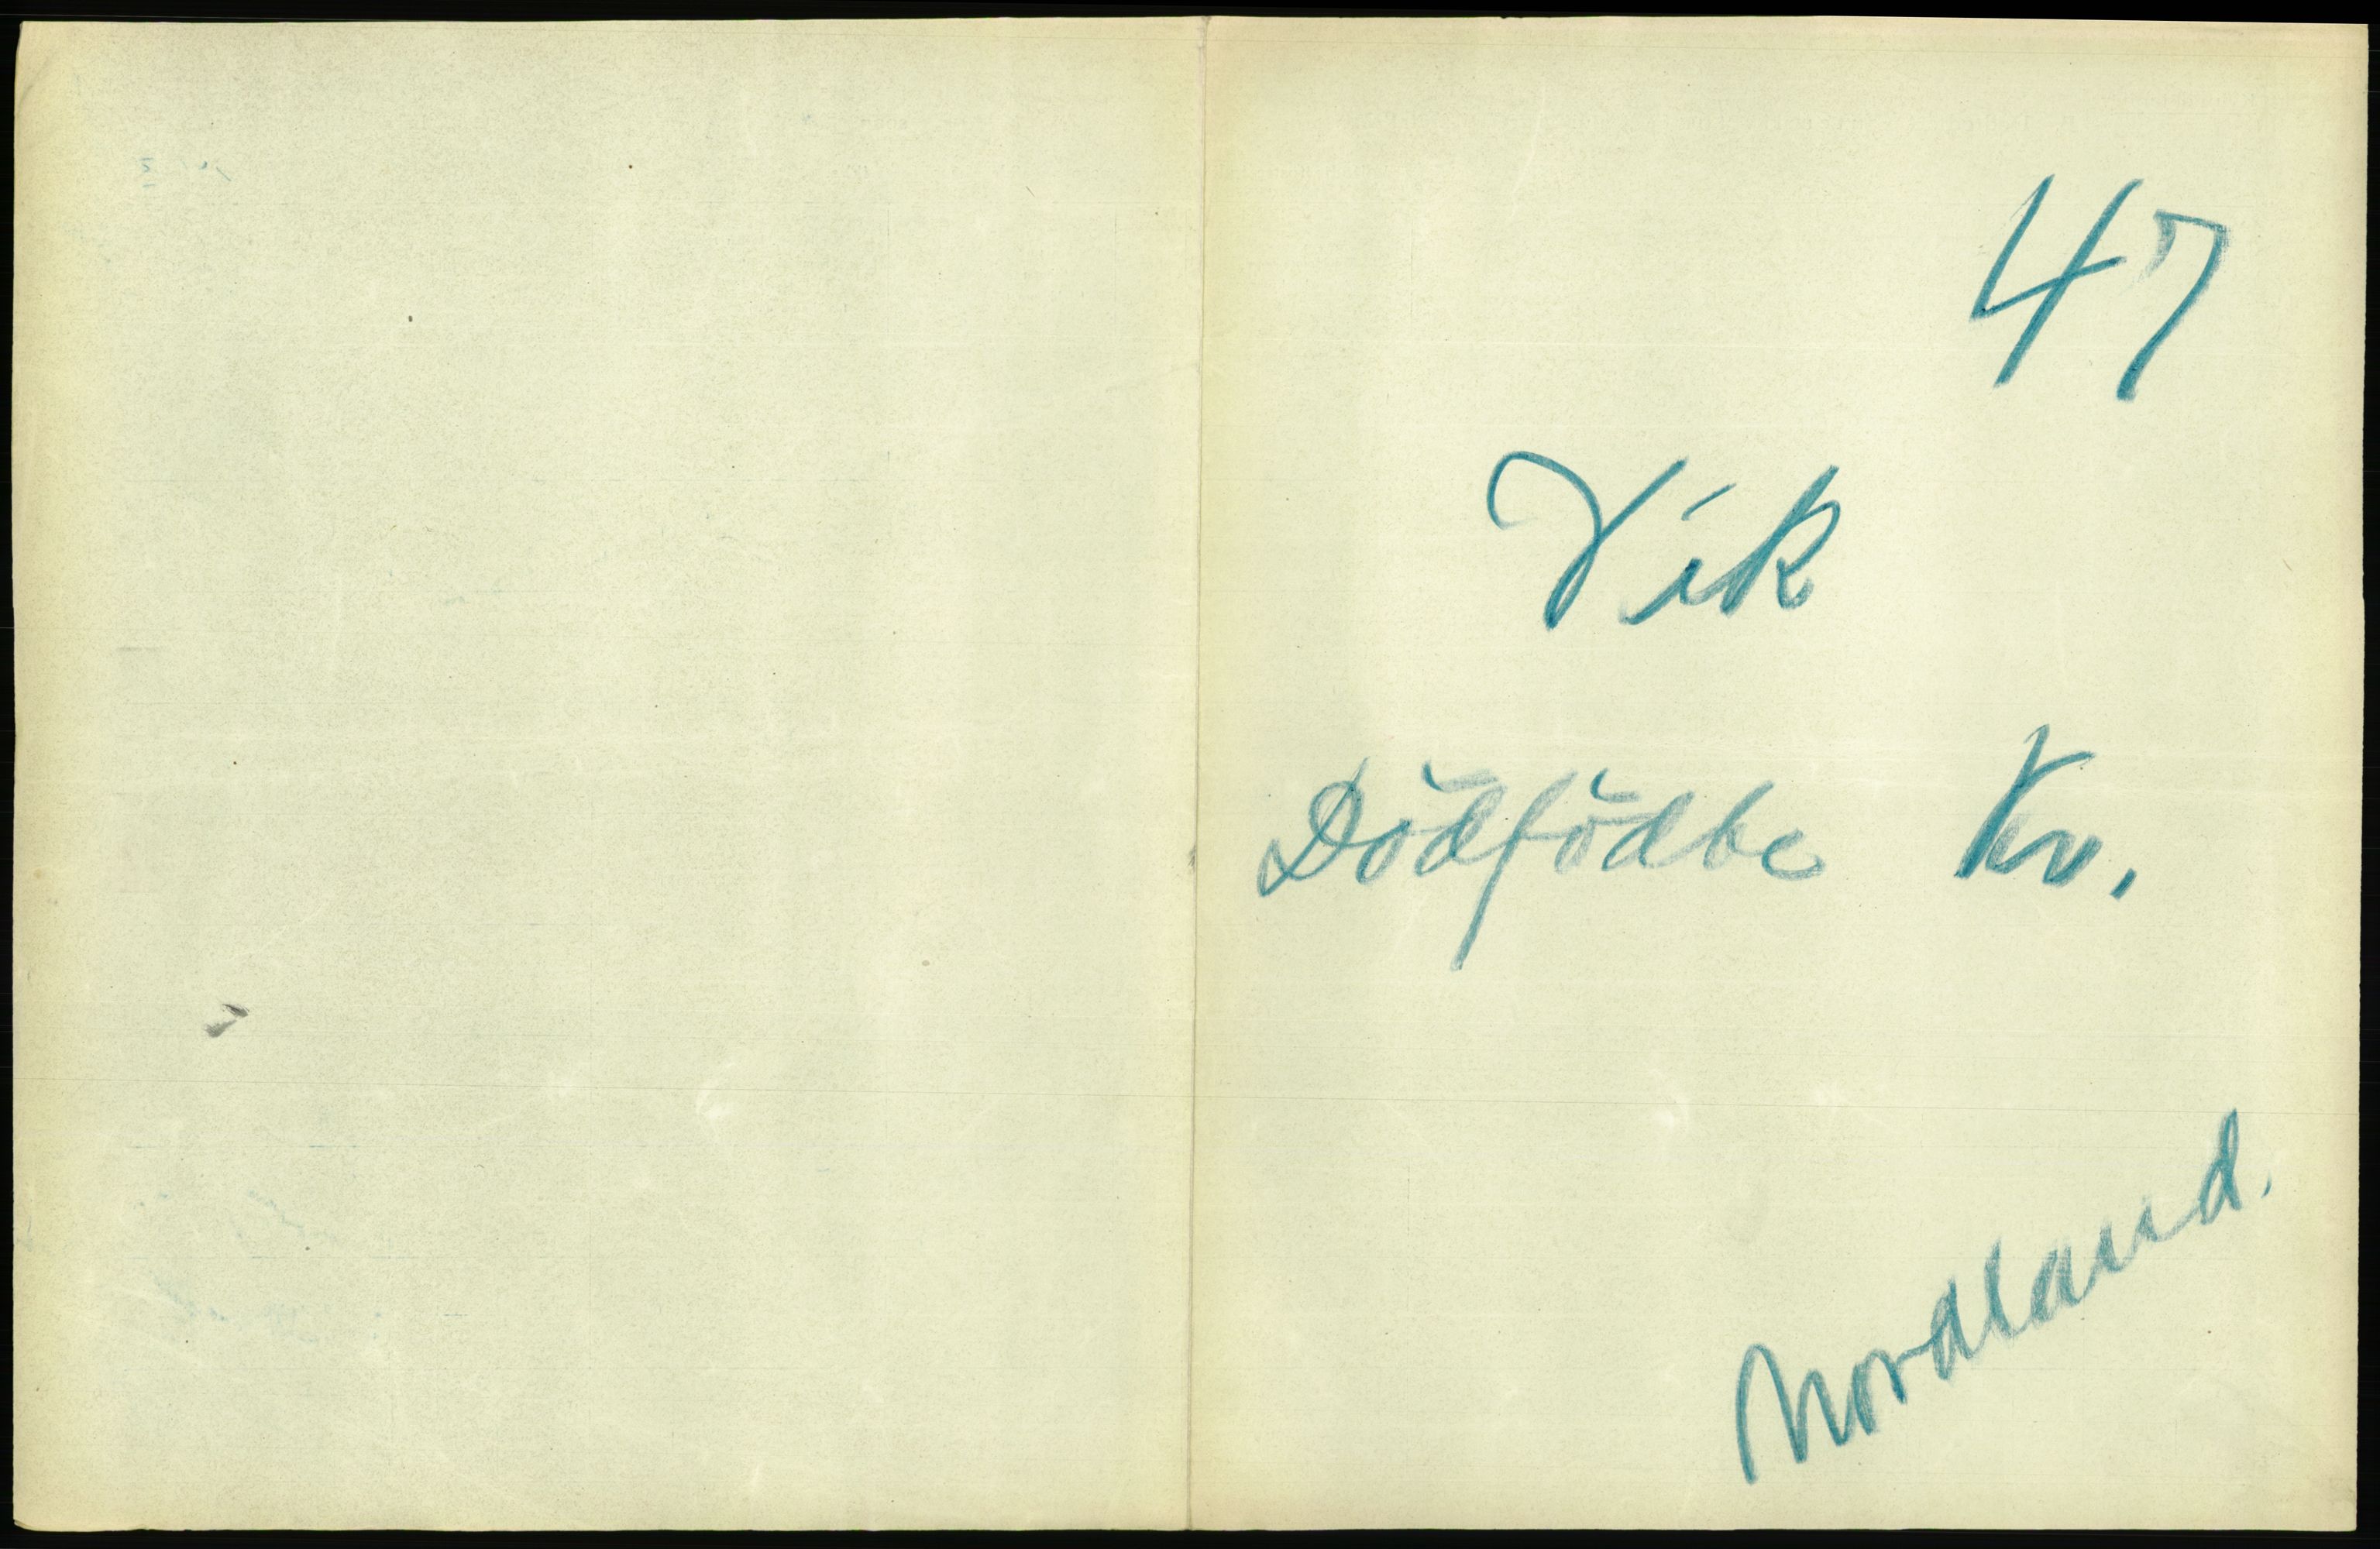 47
Vik
Dödfödte Kv.
Nordland.